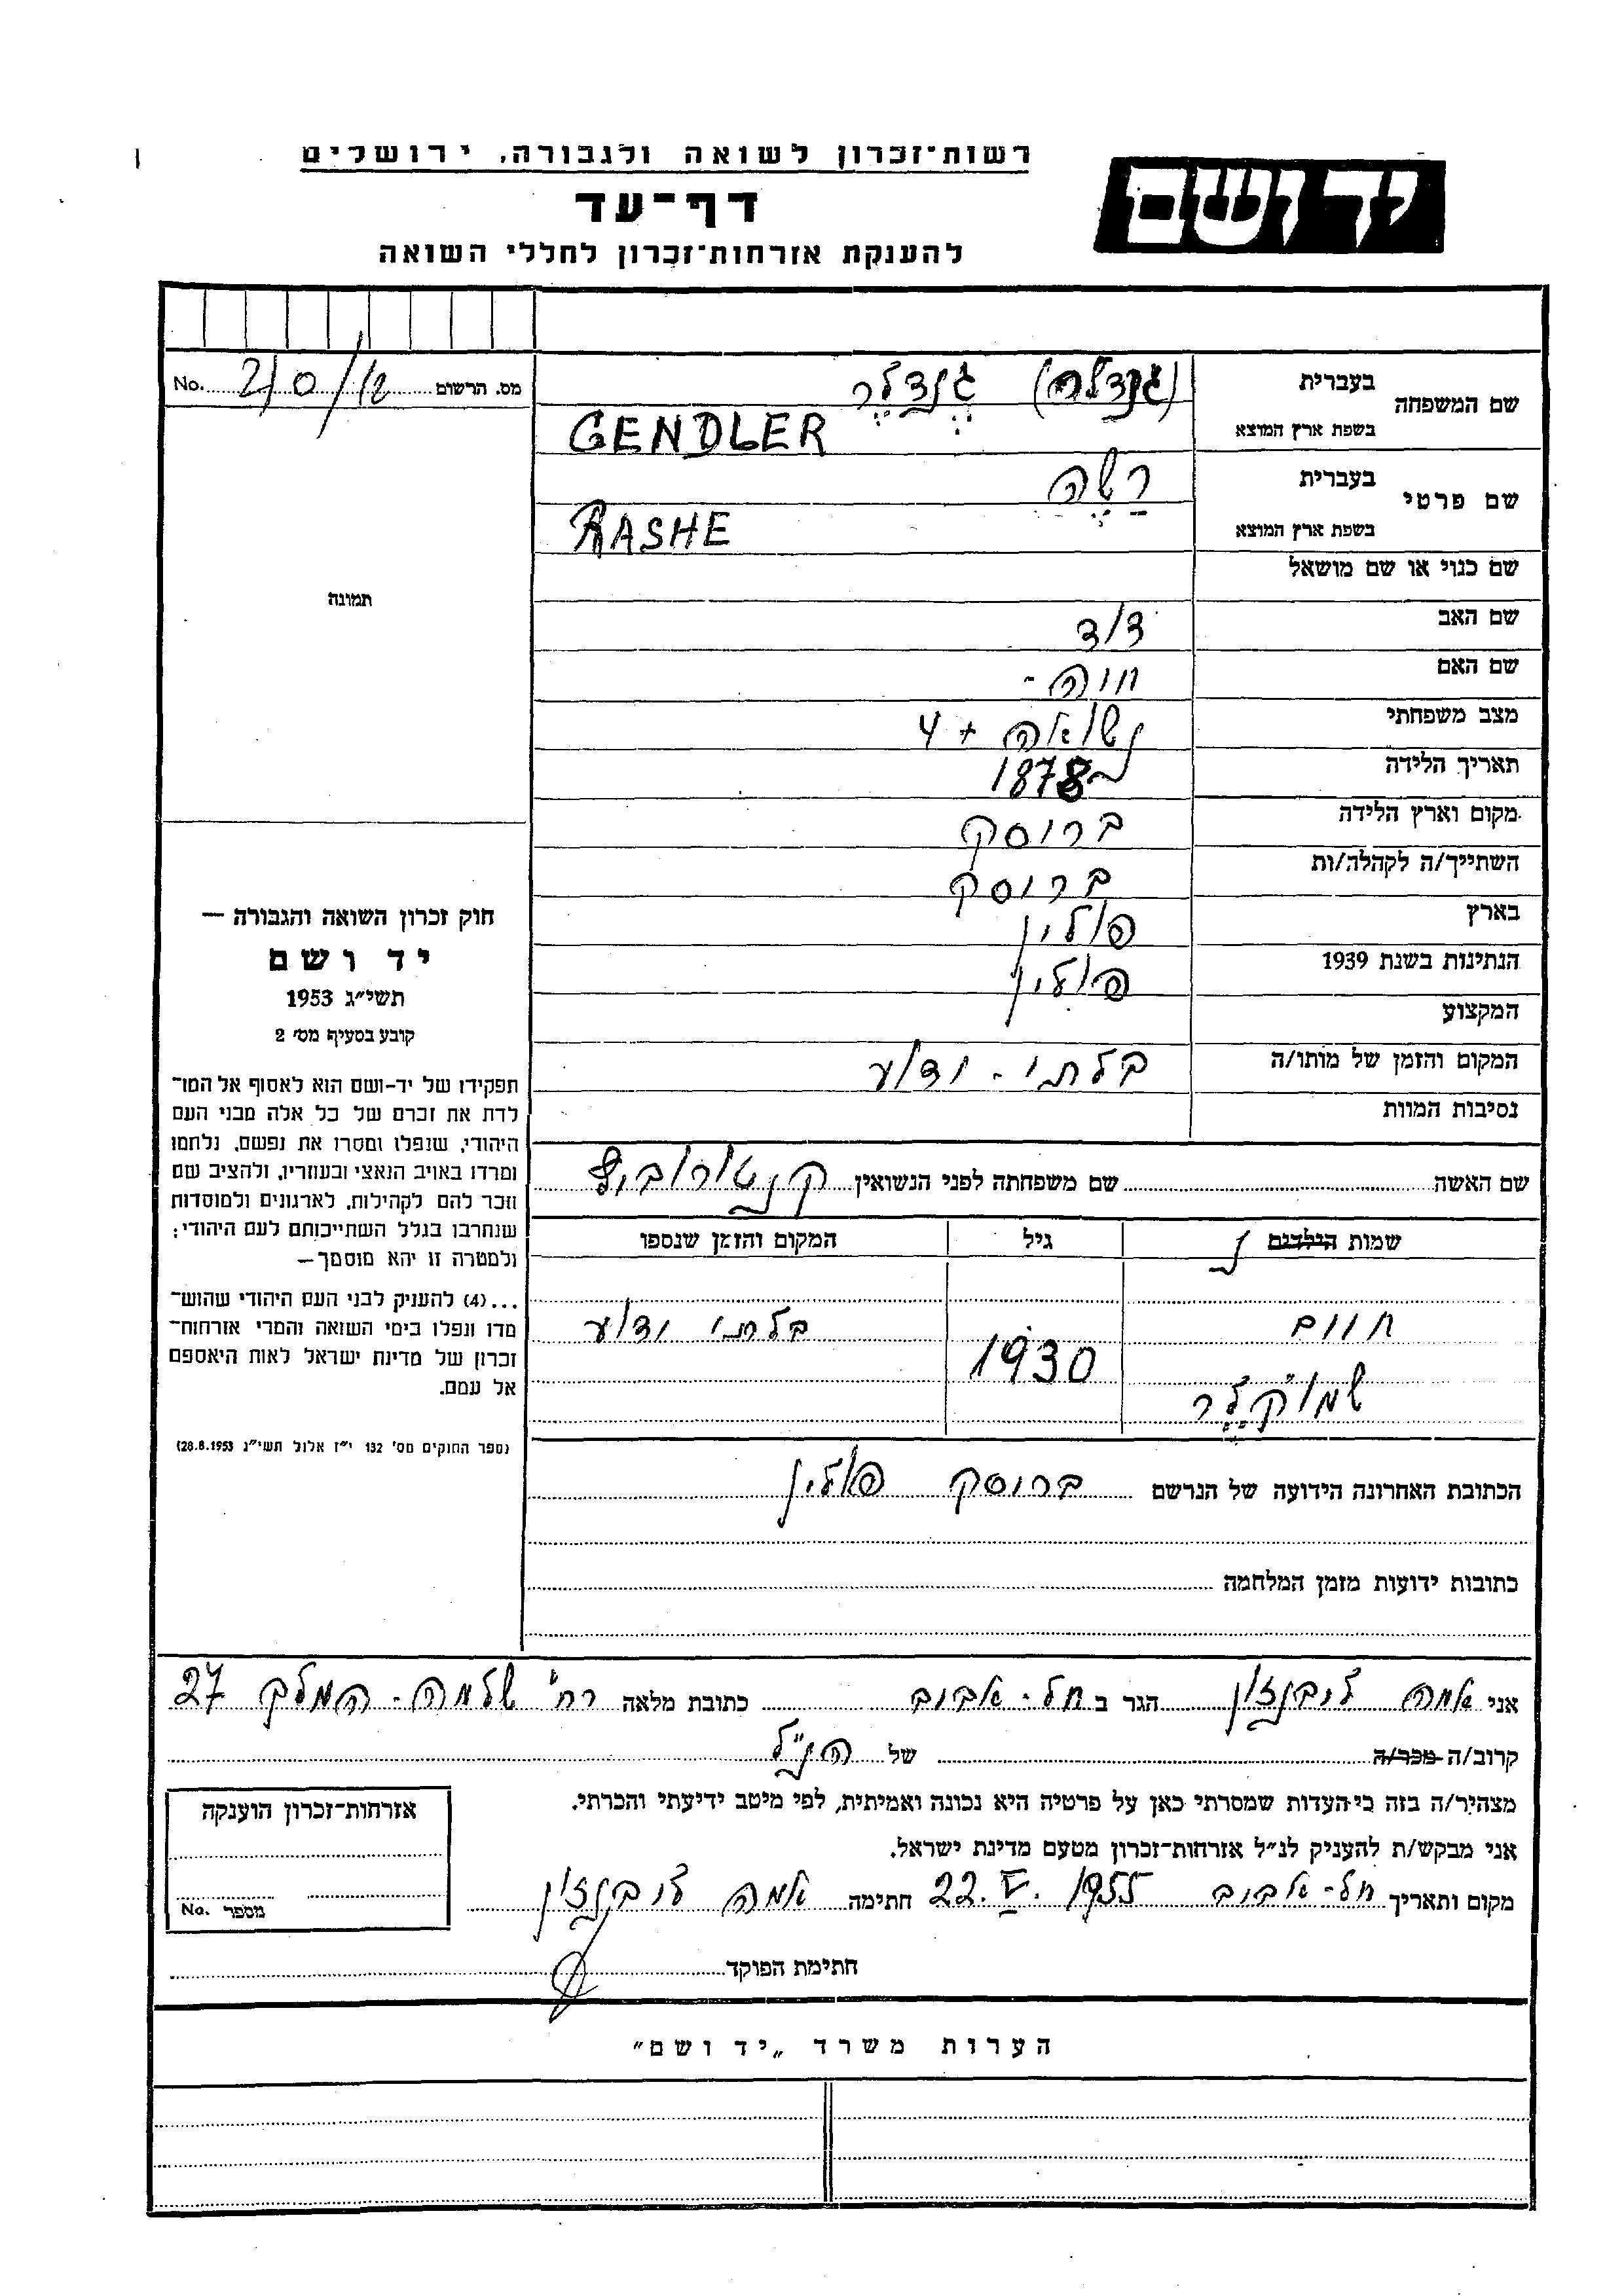 רשות־זכרון לשואה ולגבורה, ירושלים
יד ושם
דף־עד
להענקת אזרחות־זכרון לחללי השואה
מס. הרשום No.
שם המשפחה
בעברית (גנדלר) גֶנְדלֶר
בשפת ארץ המוצא GENDLER
שם פרטי
בעברית רַשֶה
בשפת ארץ המוצא RASHE
שם כנוי או שם מושאל
שם האב דוד
שם האם חוה -
מצב משפחתי נשואה + 4
תאריך הלידה 1878
מקום וארץ הלידה ברוסק
השתייך/ה לקהלה/ות ברוסק
בארץ פולין
הנתינות בשנת 1939 פולין
המקצוע
המקום והזמן של מותו/ה בלתי - ודוע
נסיבות המוות
שם האשה שם משפחתה לפני הנשואין
שמות הילדים גיל המקום והזמן שנספו
חיים 1930 בלתי ודוע
שמוקלר
הכתובת האחרונה הידועה של הנרשם ברוסק פולין
כתובות ידועות מזמן המלחמה
תמונה
חוק זכרון השואה והגבורה —
יד ושם
תשי״ג 1953
קובע בסעיף מס׳ 2
תפקידו של יד־ושם הוא לאסוף אל המו־
לדת את זכרם של כל אלה מבני העם
היהודי, שנפלו ומסרו את נפשם, נלחמו
ומרדו באויב הנאצי ובעוזריו, ולהציב שם
וזכר להם לקהילות, לארגונים ולמוסדות
שנחרבו בגלל השתייכותם לעם היהודי;
ולמטרה זו יהא מוסמך —
...(4) להעניק לבני העם היהודי שהוש־
מדו ונפלו בימי השואה והמרי אזרחות־
זכרון של מדינת ישראל לאות היאספם
אל עמם.
(ספר החוקים מס׳ 132 י״ז אלול תשי״ג 28.8.1953)
אני אמה ליבנזון הגר ב תל-אביב כתובת מלאה רח׳ שלמה-המלך 27
קרוב/ה מכר/ה של הנ״ל
מצהיר/ה בזה כי העדות שמסרתי כאן על פרטיה היא נכונה ואמיתית, לפי מיטב ידיעתי והכרתי.
אני מבקש/ת להעניק לנ״ל אזרחות־זכרון מטעם מדינת ישראל.
מקום ותאריך תל-אביב 22.V.1955 חתימה אמה ליבנזון
חתימת הפוקד
אזרחות־זכרון הוענקה
מספר No.
הערות משרד „יד ושם״